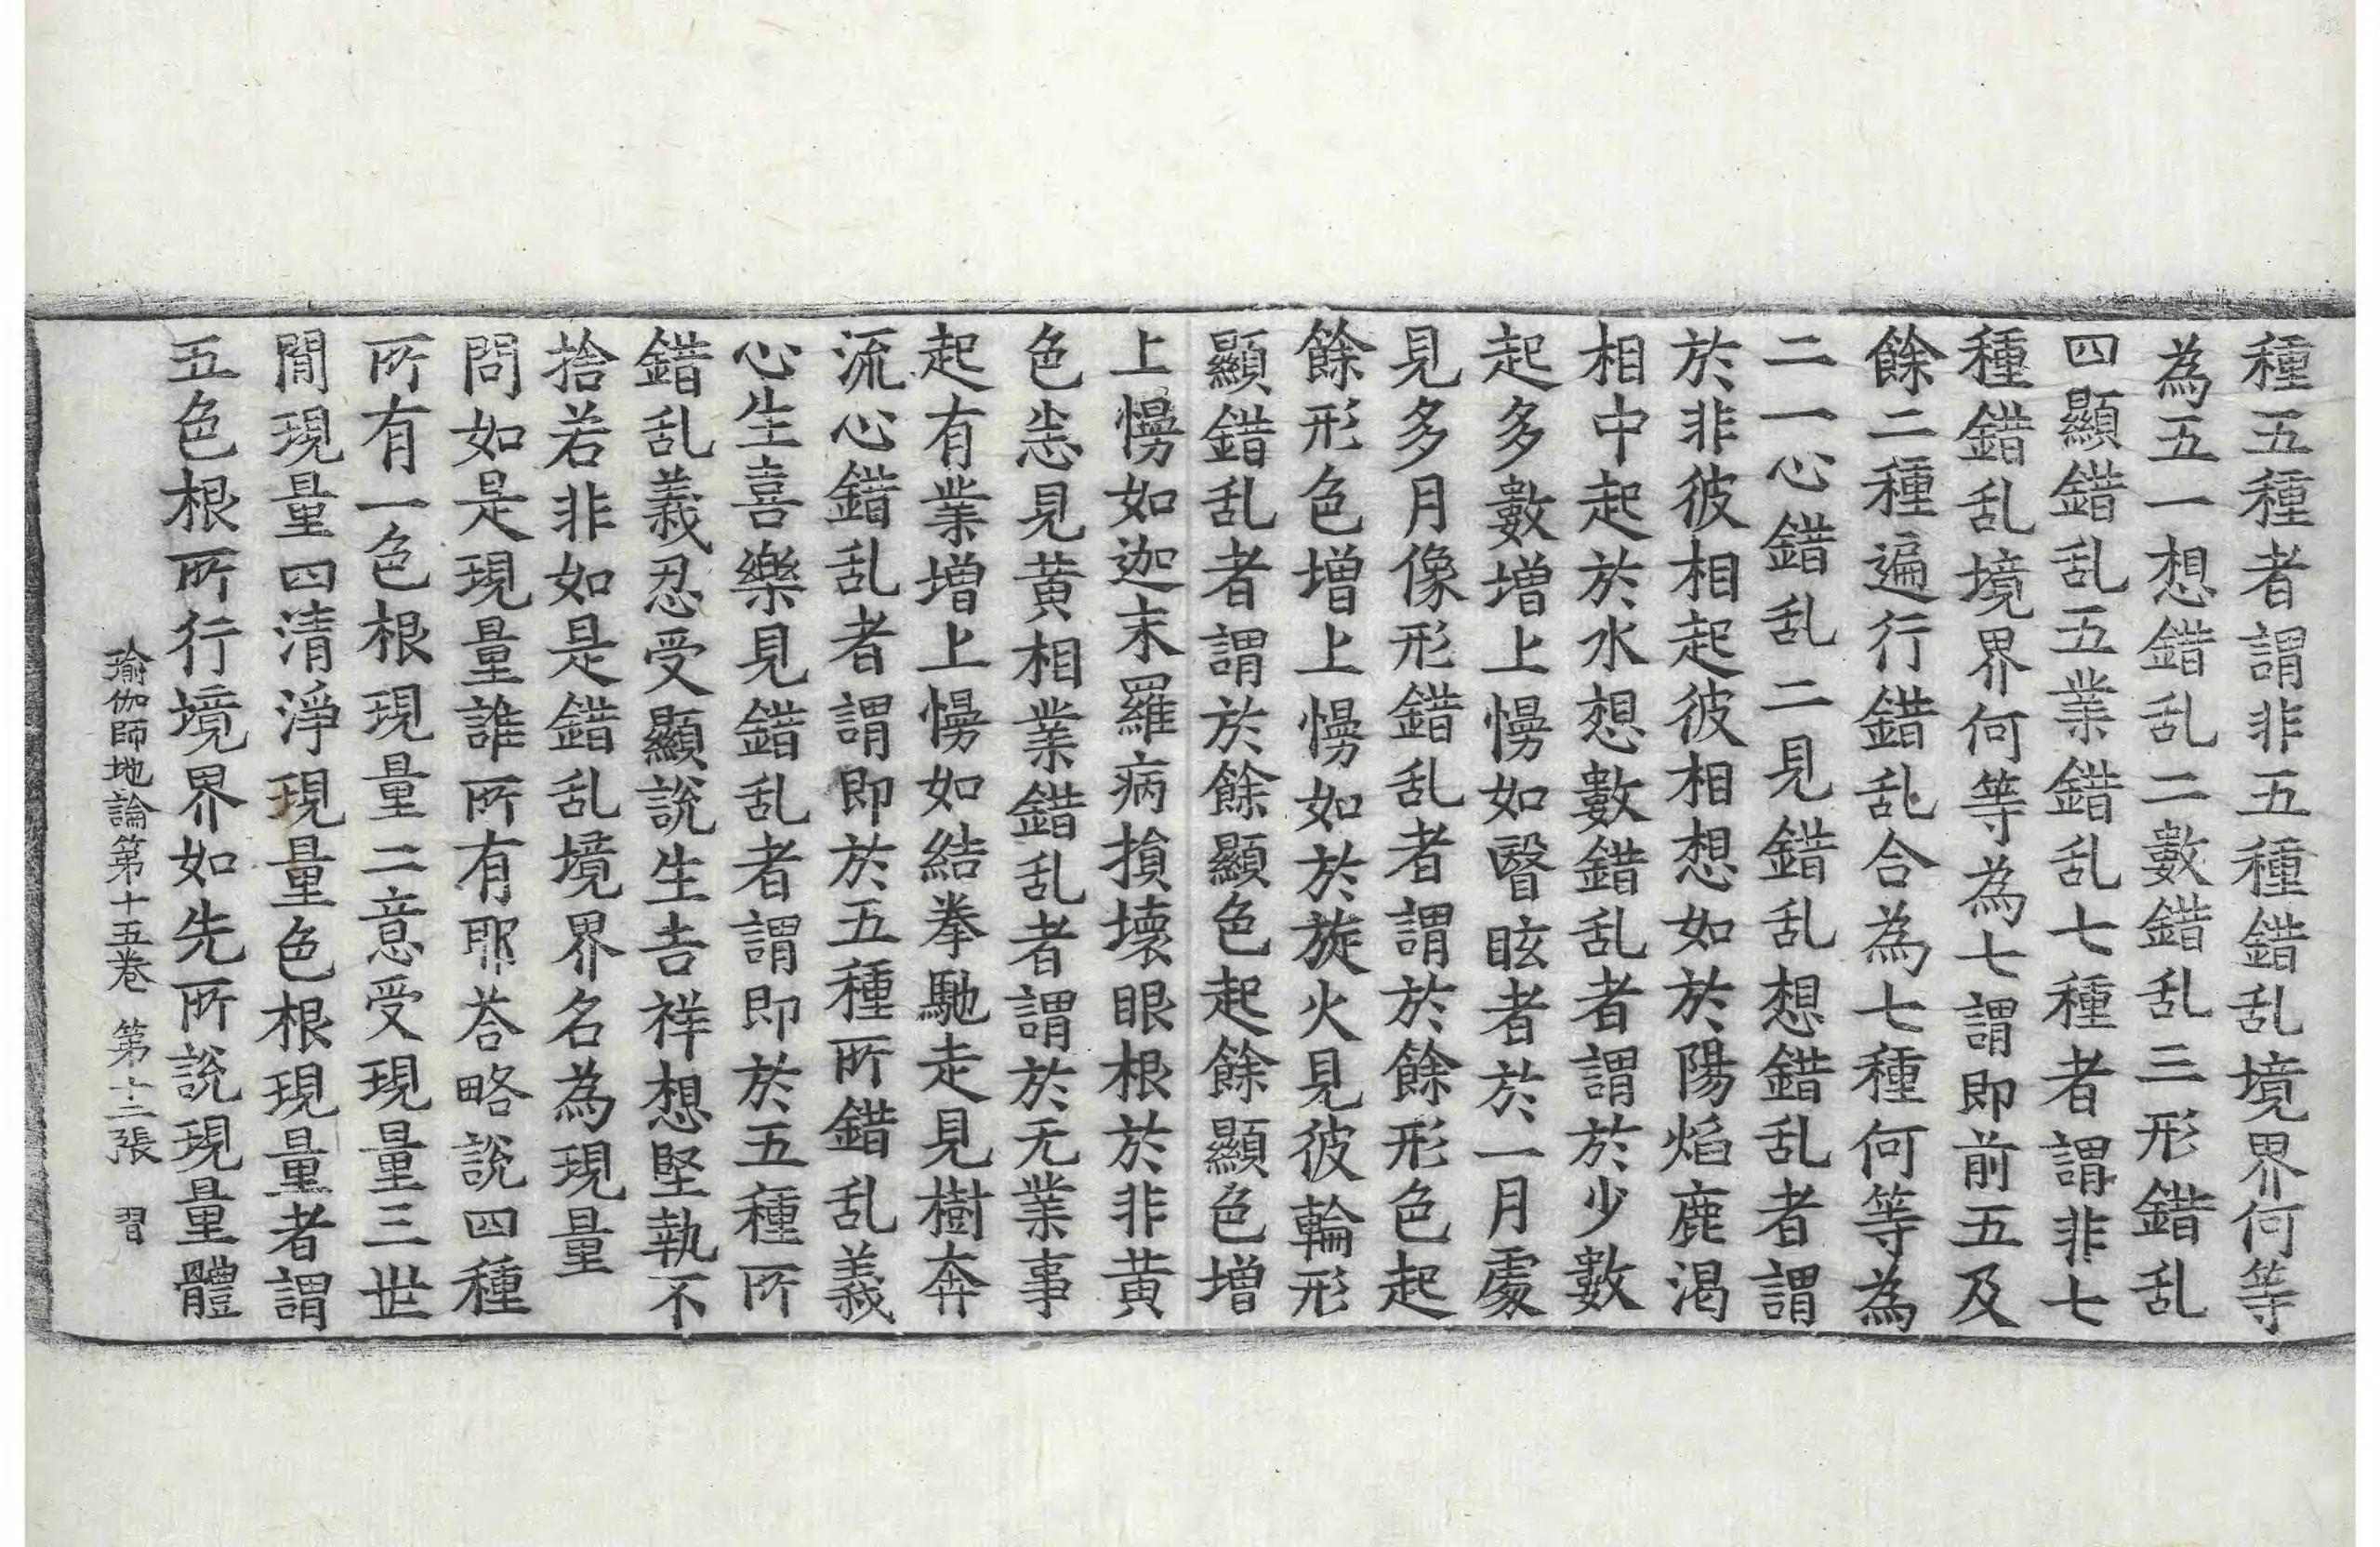 種五種者謂非五種錯乱境界何等
為五一想錯乱二數錯乱三形錯乱
四顯錯乱五業錯乱七種者謂非七
種錯乱境界何等為七謂即前五及
餘二種遍行錯乱合為七種何等為
二一心錯乱二見錯乱想錯乱者謂
於非彼相起彼相想如於陽焰鹿渴
相中起於水想數錯乱者謂於少數
起多數增上慢如瞖眩者於一月處
見多月像形錯乱者謂於餘形色起
餘形色增上慢如於旋火見彼輪形
顯錯乱者謂於餘顯色起餘顯色增
上慢如迦末羅病損壞眼根於非黃
色悉見黃相業錯乱者謂於无業事
起有業增上慢如結拳馳走見樹奔
流心錯乱者謂即於五種所錯乱義
心生喜樂見錯乱者謂即於五種所
錯乱義忍受顯說生吉祥想堅執不
捨若非如是錯乱境界名為現量
問如是現量誰所有耶荅略說四種
所有一色根現量二意受現量三世
閒現量四清淨現量色根現量者謂
五色根所行境界如先所說現量體
瑜伽師地論第十五卷 第十二張 習